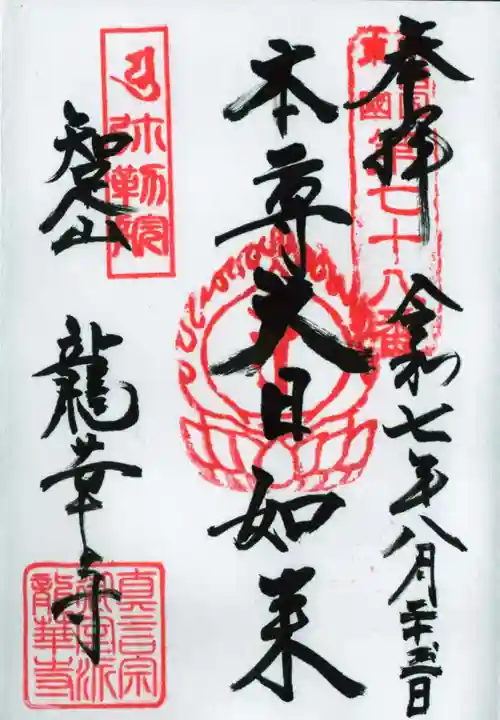 奉拝
令和七年八月二十五日
東國
第七十八番
本尊大日如来
弥勒院
智足山
龍華寺
真言宗
御室派
龍華寺